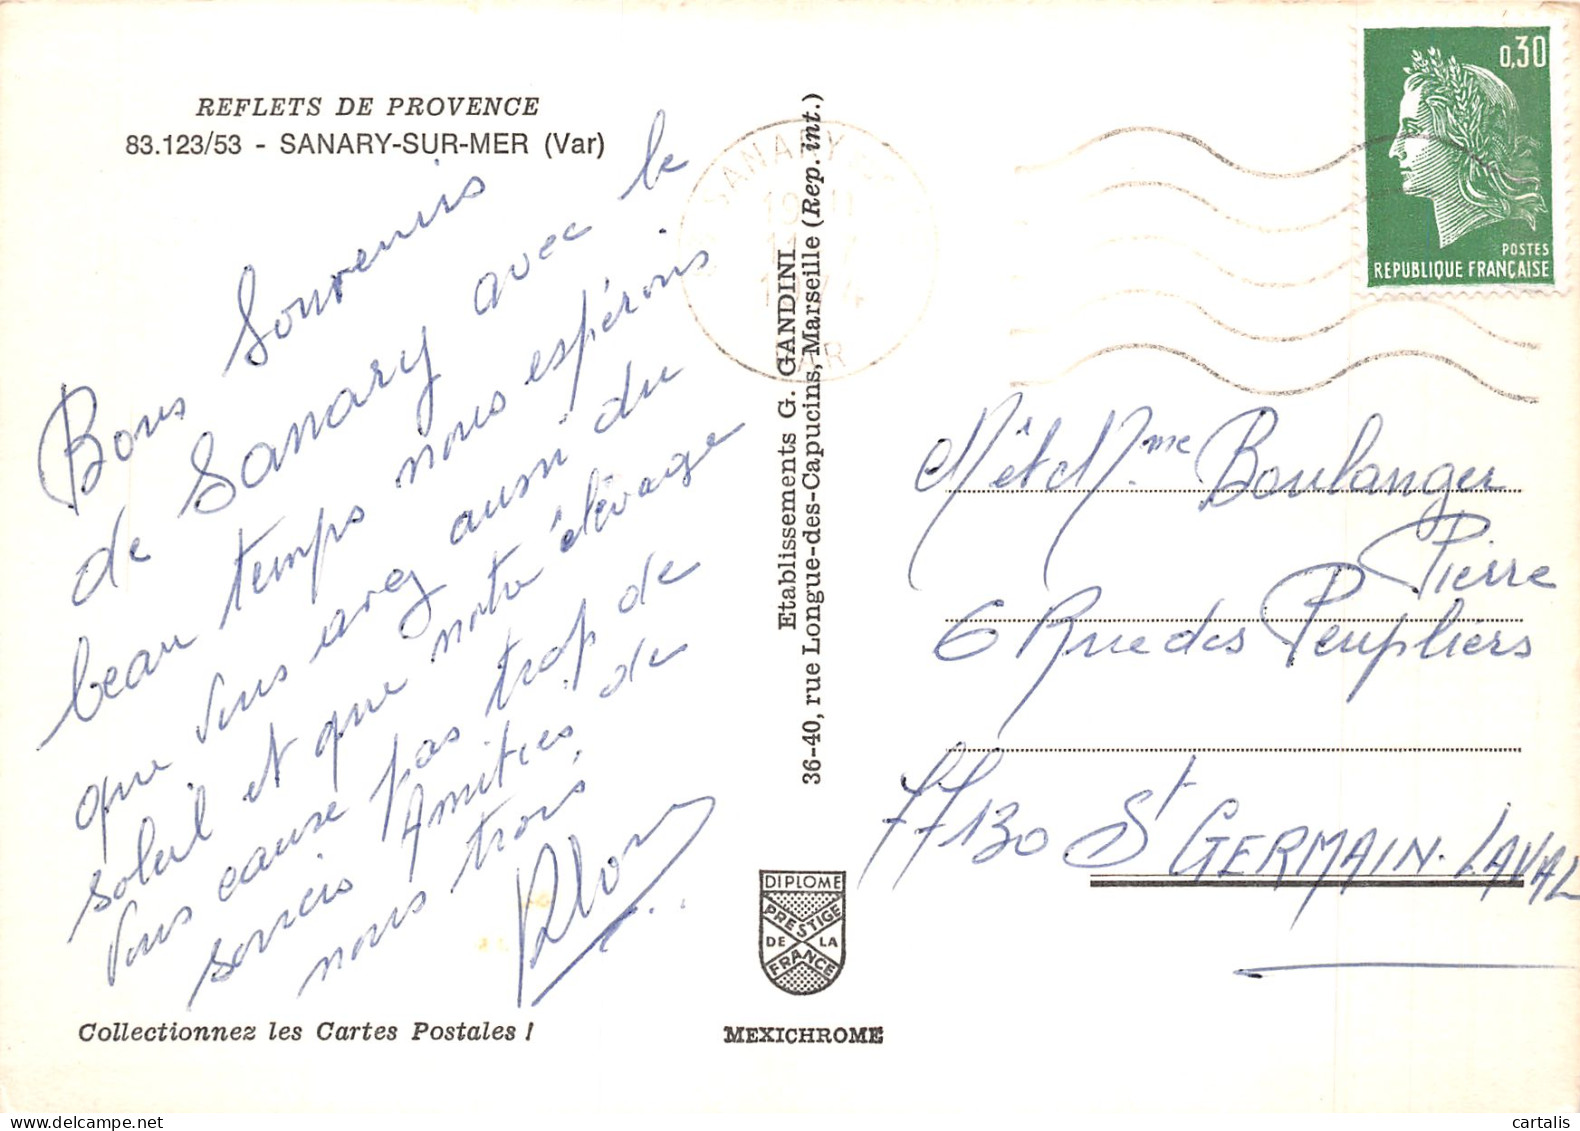 REFLETS DE PROVENCE
83.123/53 - SANARY-SUR-MER (Var)
Bons Souvenirs
de Sanary avec le
beau temps nous espérons
que vous avez aussi du
soleil et que notre élevage
vous cause pas trop de
soucis Amitiés de
nous trois
Collectionnez les Cartes Postales !
Etablissements G. GANDINI
36-40, rue Longue-des-Capucins, Marseille (Rep. int.)
DIPLOME
PRESTIGE
DE LA
FRANCE
MEXICHROME
SANARY
VAR
0,30
POSTES
REPUBLIQUE FRANÇAISE
M. et Mme Boulanger
Pierre
6 Rue des Peupliers
77130 St GERMAIN-LAVAL
cartalis